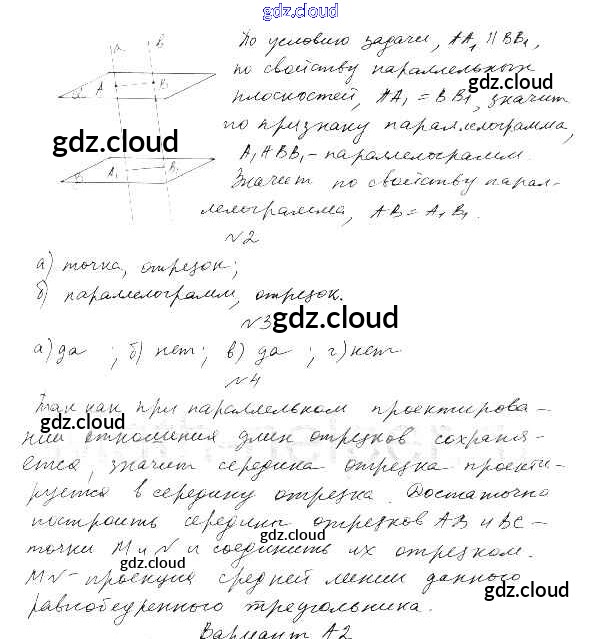 gdz.cloud
a
b
По условию задачи, AA₁ ∥ BB₁,
по свойству параллельных
gdz.cloud
плоскостей, AA₁ = BB₁, значит
по признаку параллелограмма,
A₁ABB₁ - параллелограмм.
Значит по свойству парал-
лелограмма, AB = A₁B₁.
α
A
B₁
gdz.cloud
gdz.cloud
A₁
B₂
β
№2
а) точка, отрезок;
б) параллелограмм, отрезок.
№3
gdz.cloud
а) да ; б) нет; в) да ; г) нет
№4
Так как при параллельном проектирова-
gdz.cloud
нии отношения длин отрезков сохраня-
gdz.cloud
ется, значит середина отрезка проекти-
руется в середину отрезка. Достаточно
построить середины отрезков AB и BC -
gdz.cloud
точки M и N и соединить их отрезком.
MN - проекция средней линии данного
gdz.cloud
равнобедренного треугольника.
gdz.cloud
Вариант А2